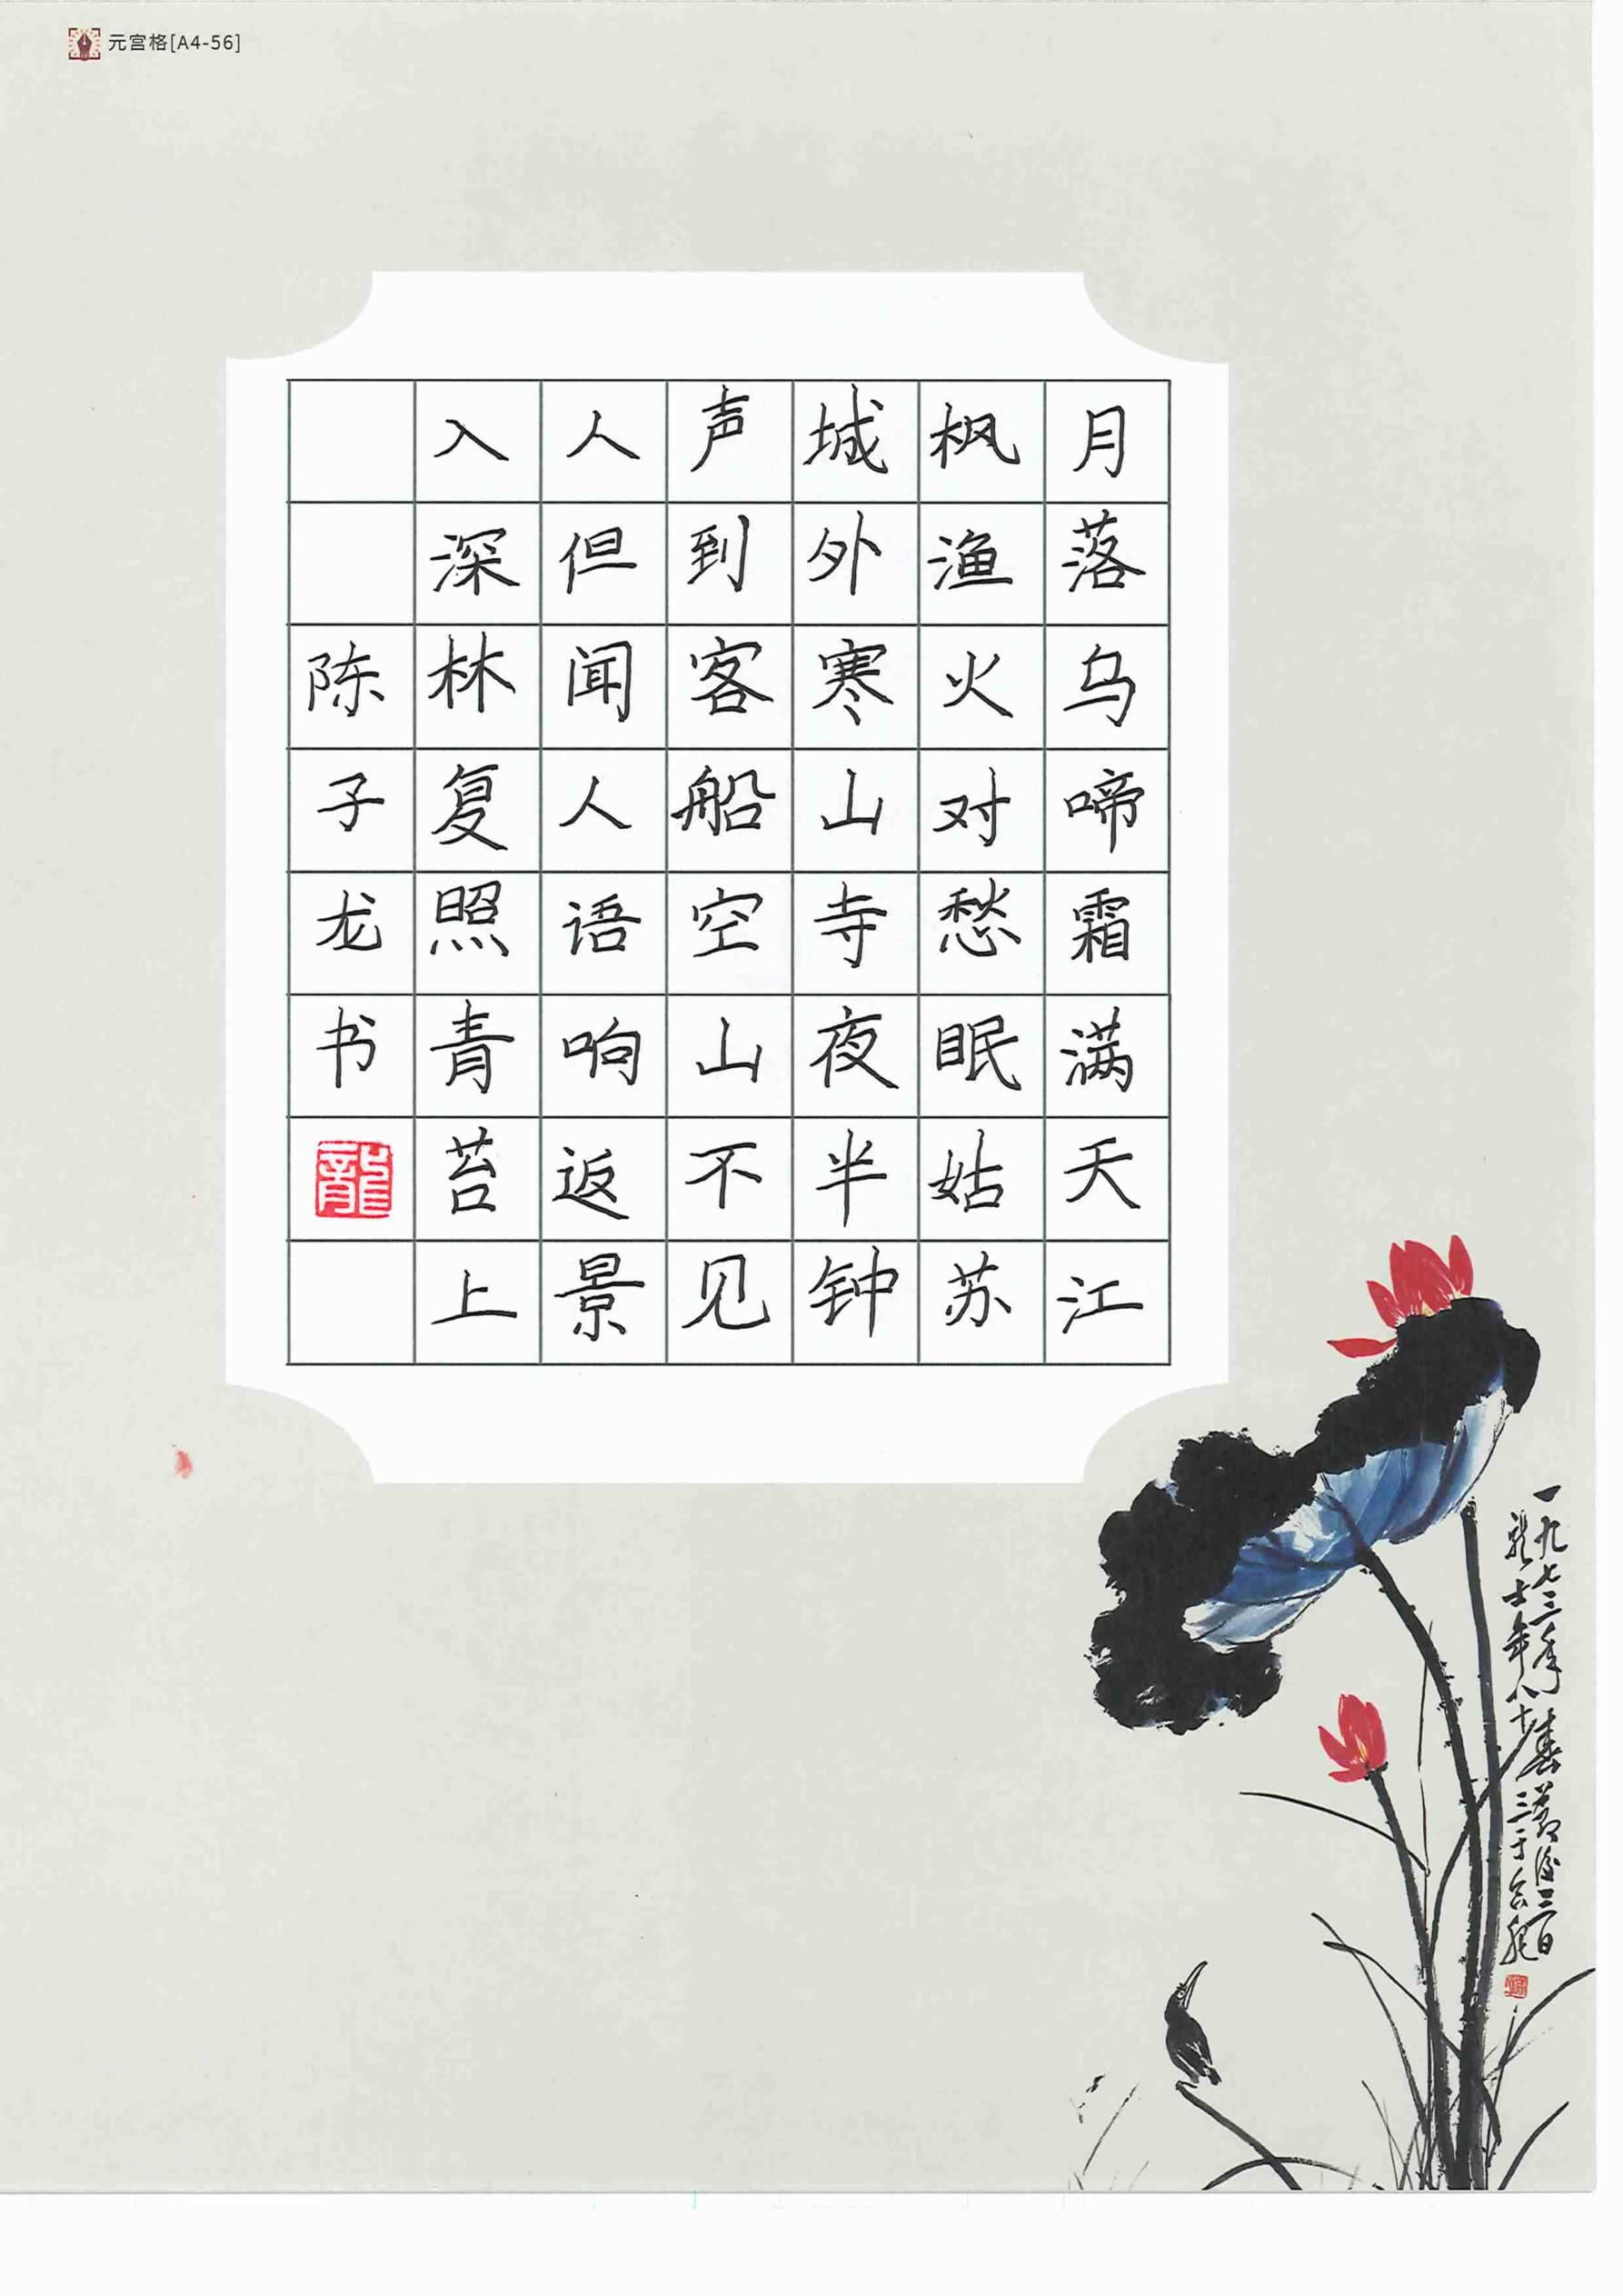 元宫格[A4-56]
月落乌啼霜满天江
枫渔火对愁眠姑苏
城外寒山寺夜半钟
声到客船空山不见
人但闻人语响返景
入深林复照青苔上
陈子龙书
龍
一九七三年